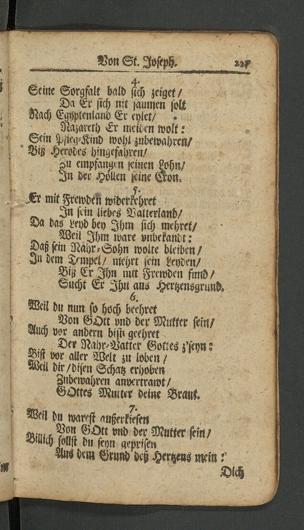 Von St. Joseph.
4.
Seine Sorgfalt bald sich zeiget/
Da Er sich nit saumen solt
Nach Egyptenland Er eylet/
Nazareth Er meiden wolt:
Sein Pfleg-Kind wohl zubewahren/
Biß Herodes hingefahren/
Zu empfangen seinen Lohn/
In der Höllen seine Cron.
5.
Er mit Frewden widerkehret
In sein liebes Vatterland/
Da das Leyd bey Ihm sich mehret/
Weil Ihm ware unbekandt:
Daß sein Nähr-Sohn wolte bleiben/
In dem Tempel/ mehrt sein Leyden/
Biß Er Ihn mit Frewden fund/
Sucht Er Ihn aus Hertzensgrund.
6.
Weil du nun so hoch beehret
Von GOtt vnd der Mutter sein/
Auch vor andern bist geehrt
Der Nähr-Vatter Gottes z'seyn:
Bist vor aller Welt zu loben/
Weil dir/ disen Schatz erhoben
Zubewahren anvertrawt/
GOttes Mutter deine Braut.
7.
Weil du warest außerkiesen
Von GOtt vnd der Mutter sein/
Billich sollst du seyn geprisen
Aus dem Grund deß Hertzens mein:
Dich